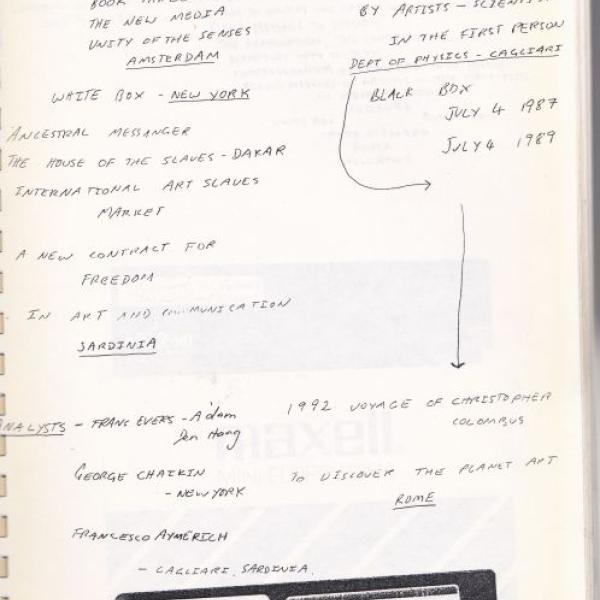 THE NEW MEDIA
UNITY OF THE SENSES
AMSTERDAM
WHITE BOX - NEW YORK
ANCESTRAL MESSANGER
THE HOUSE OF THE SLAVES - DAKAR
INTERNATIONAL ART SLAVES
MARKET
A NEW CONTRACT FOR
FREEDOM
IN ART AND COMMUNICATION
SARDINIA
ANALYSTS - FRANS EVERS - A'dam
Den Haag
GEORGE CHAIKIN
- NEW YORK
FRANCESCO AYMERICH
- CAGLIARI, SARDINIA.
BY ARTISTS -
IN THE FIRST PERSON
DEPT OF PHYSICS - CAGLIARI
BLACK BOX
JULY 4 1987
JULY 4 1989
1992 VOYAGE OF CHRISTOPHER
COLOMBUS
TO DISCOVER THE PLANET ART
ROME
maxell